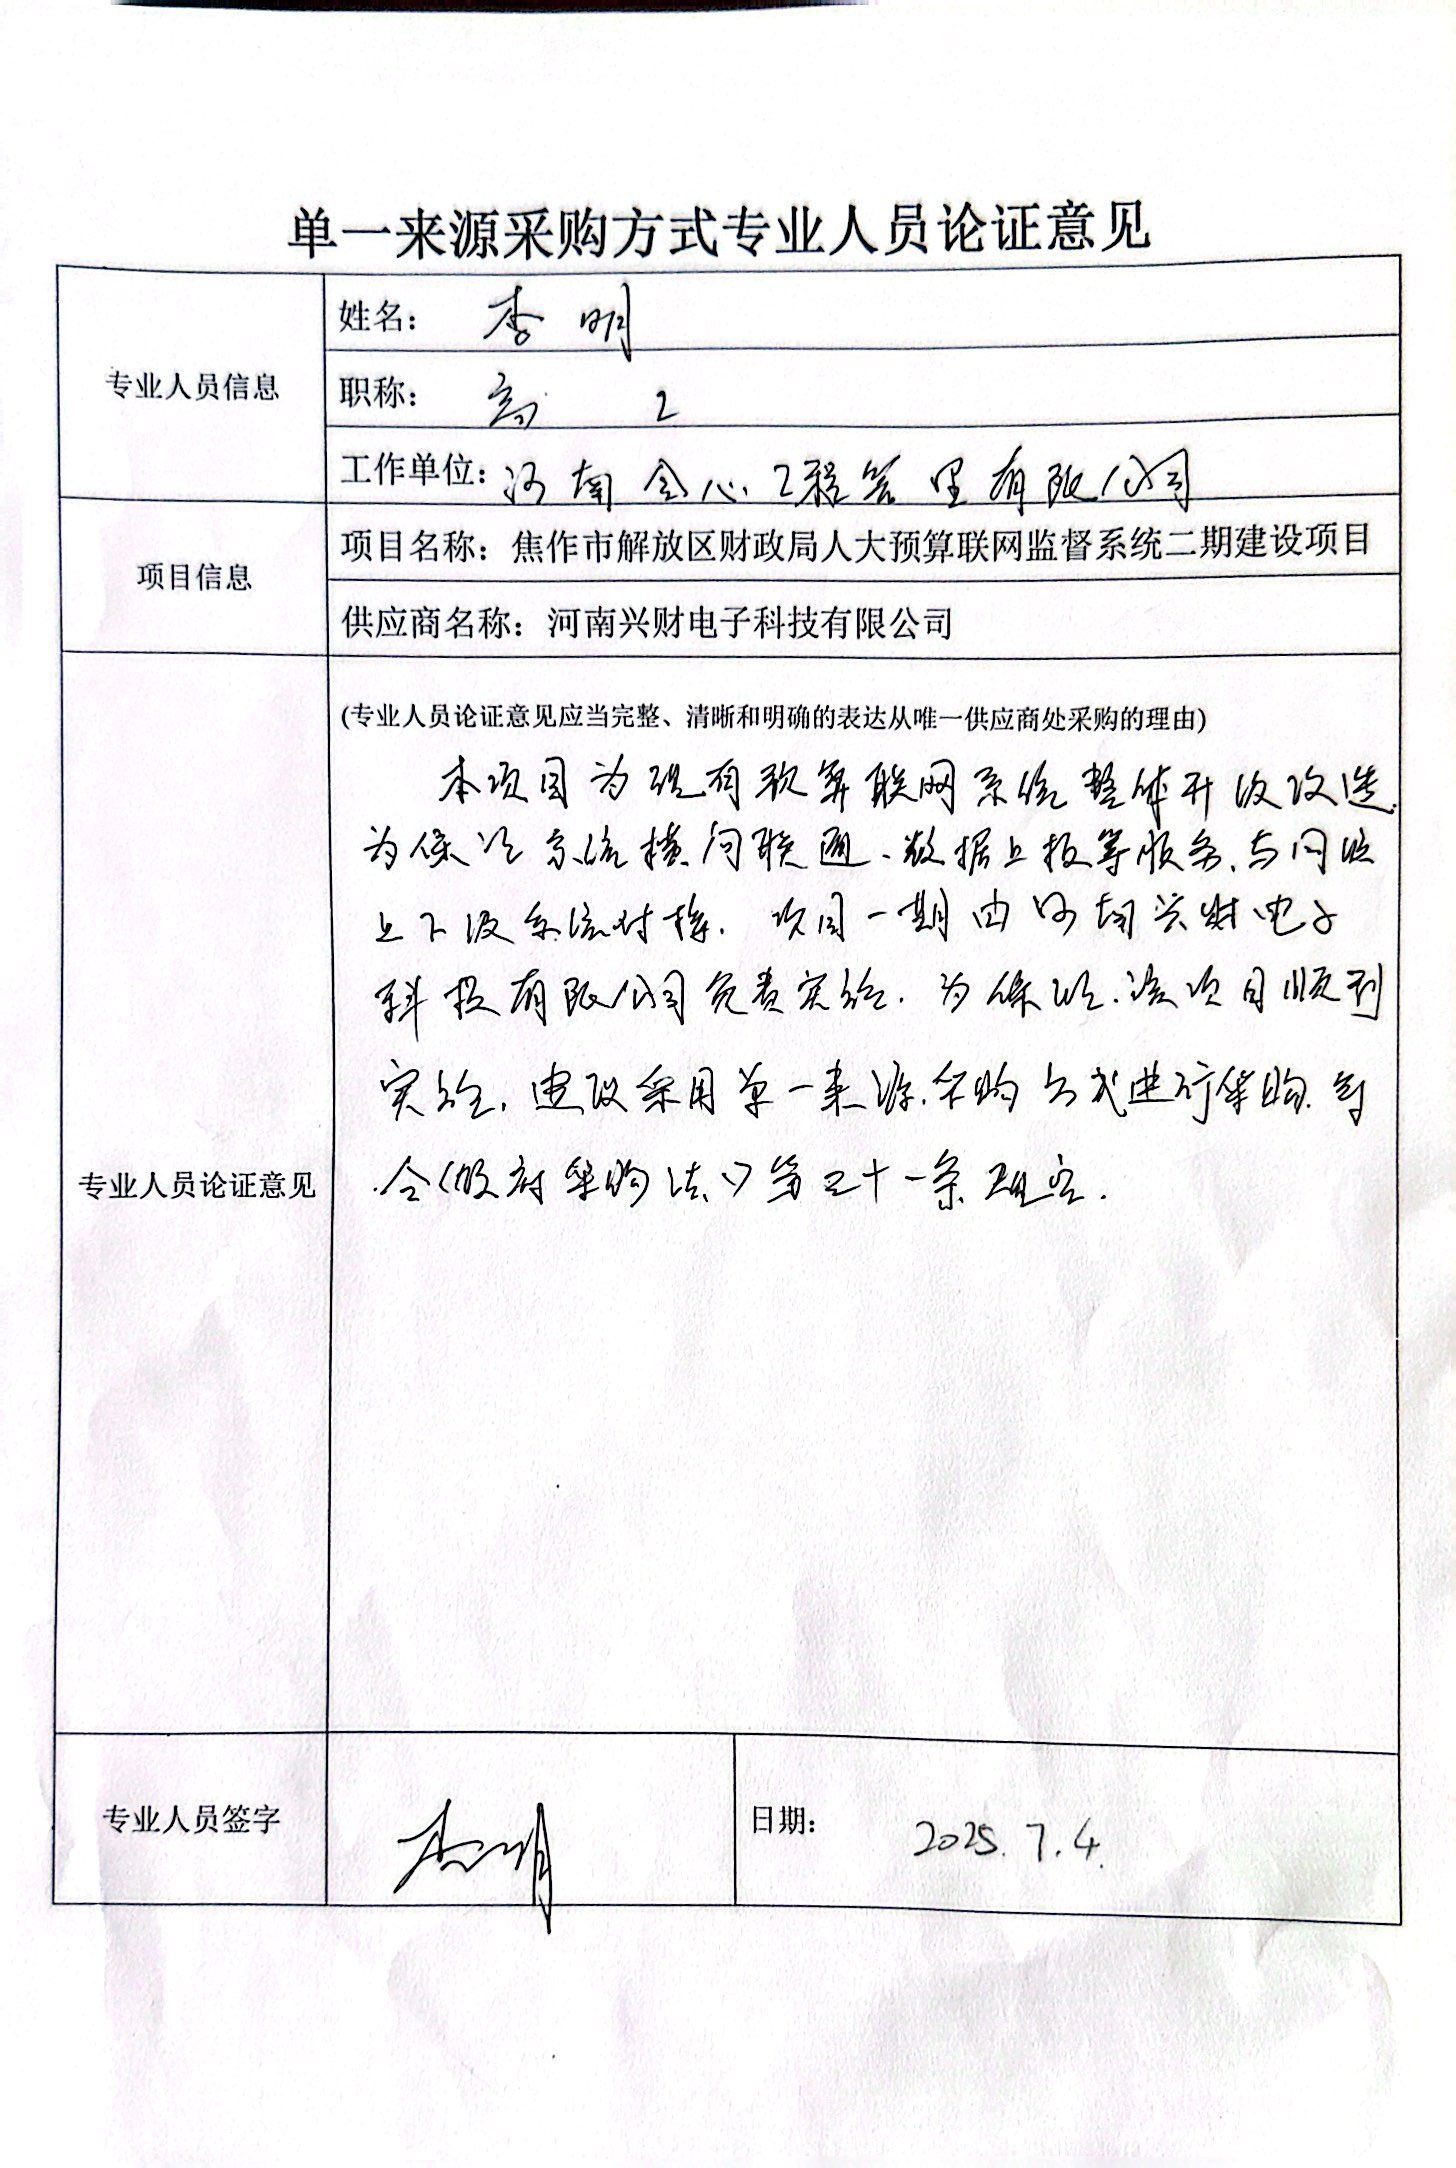 单一来源采购方式专业人员论证意见
专业人员信息
姓名：李明
职称：高工
工作单位：河南会心工程管理有限公司
项目信息
项目名称：焦作市解放区财政局人大预算联网监督系统二期建设项目
供应商名称：河南兴财电子科技有限公司
专业人员论证意见
(专业人员论证意见应当完整、清晰和明确的表达从唯一供应商处采购的理由)
本项目为现有预算联网系统整体升级改造.
为保证系统横向联通、数据上报等服务、与同级
上下级系统对接. 项目一期由河南兴财电子
科技有限公司免费实施. 为保证该项目顺利
实施, 建议采用单一来源采购方式进行采购. 符
合《政府采购法》第三十一条规定.
专业人员签字
李明
日期：2025.7.4.